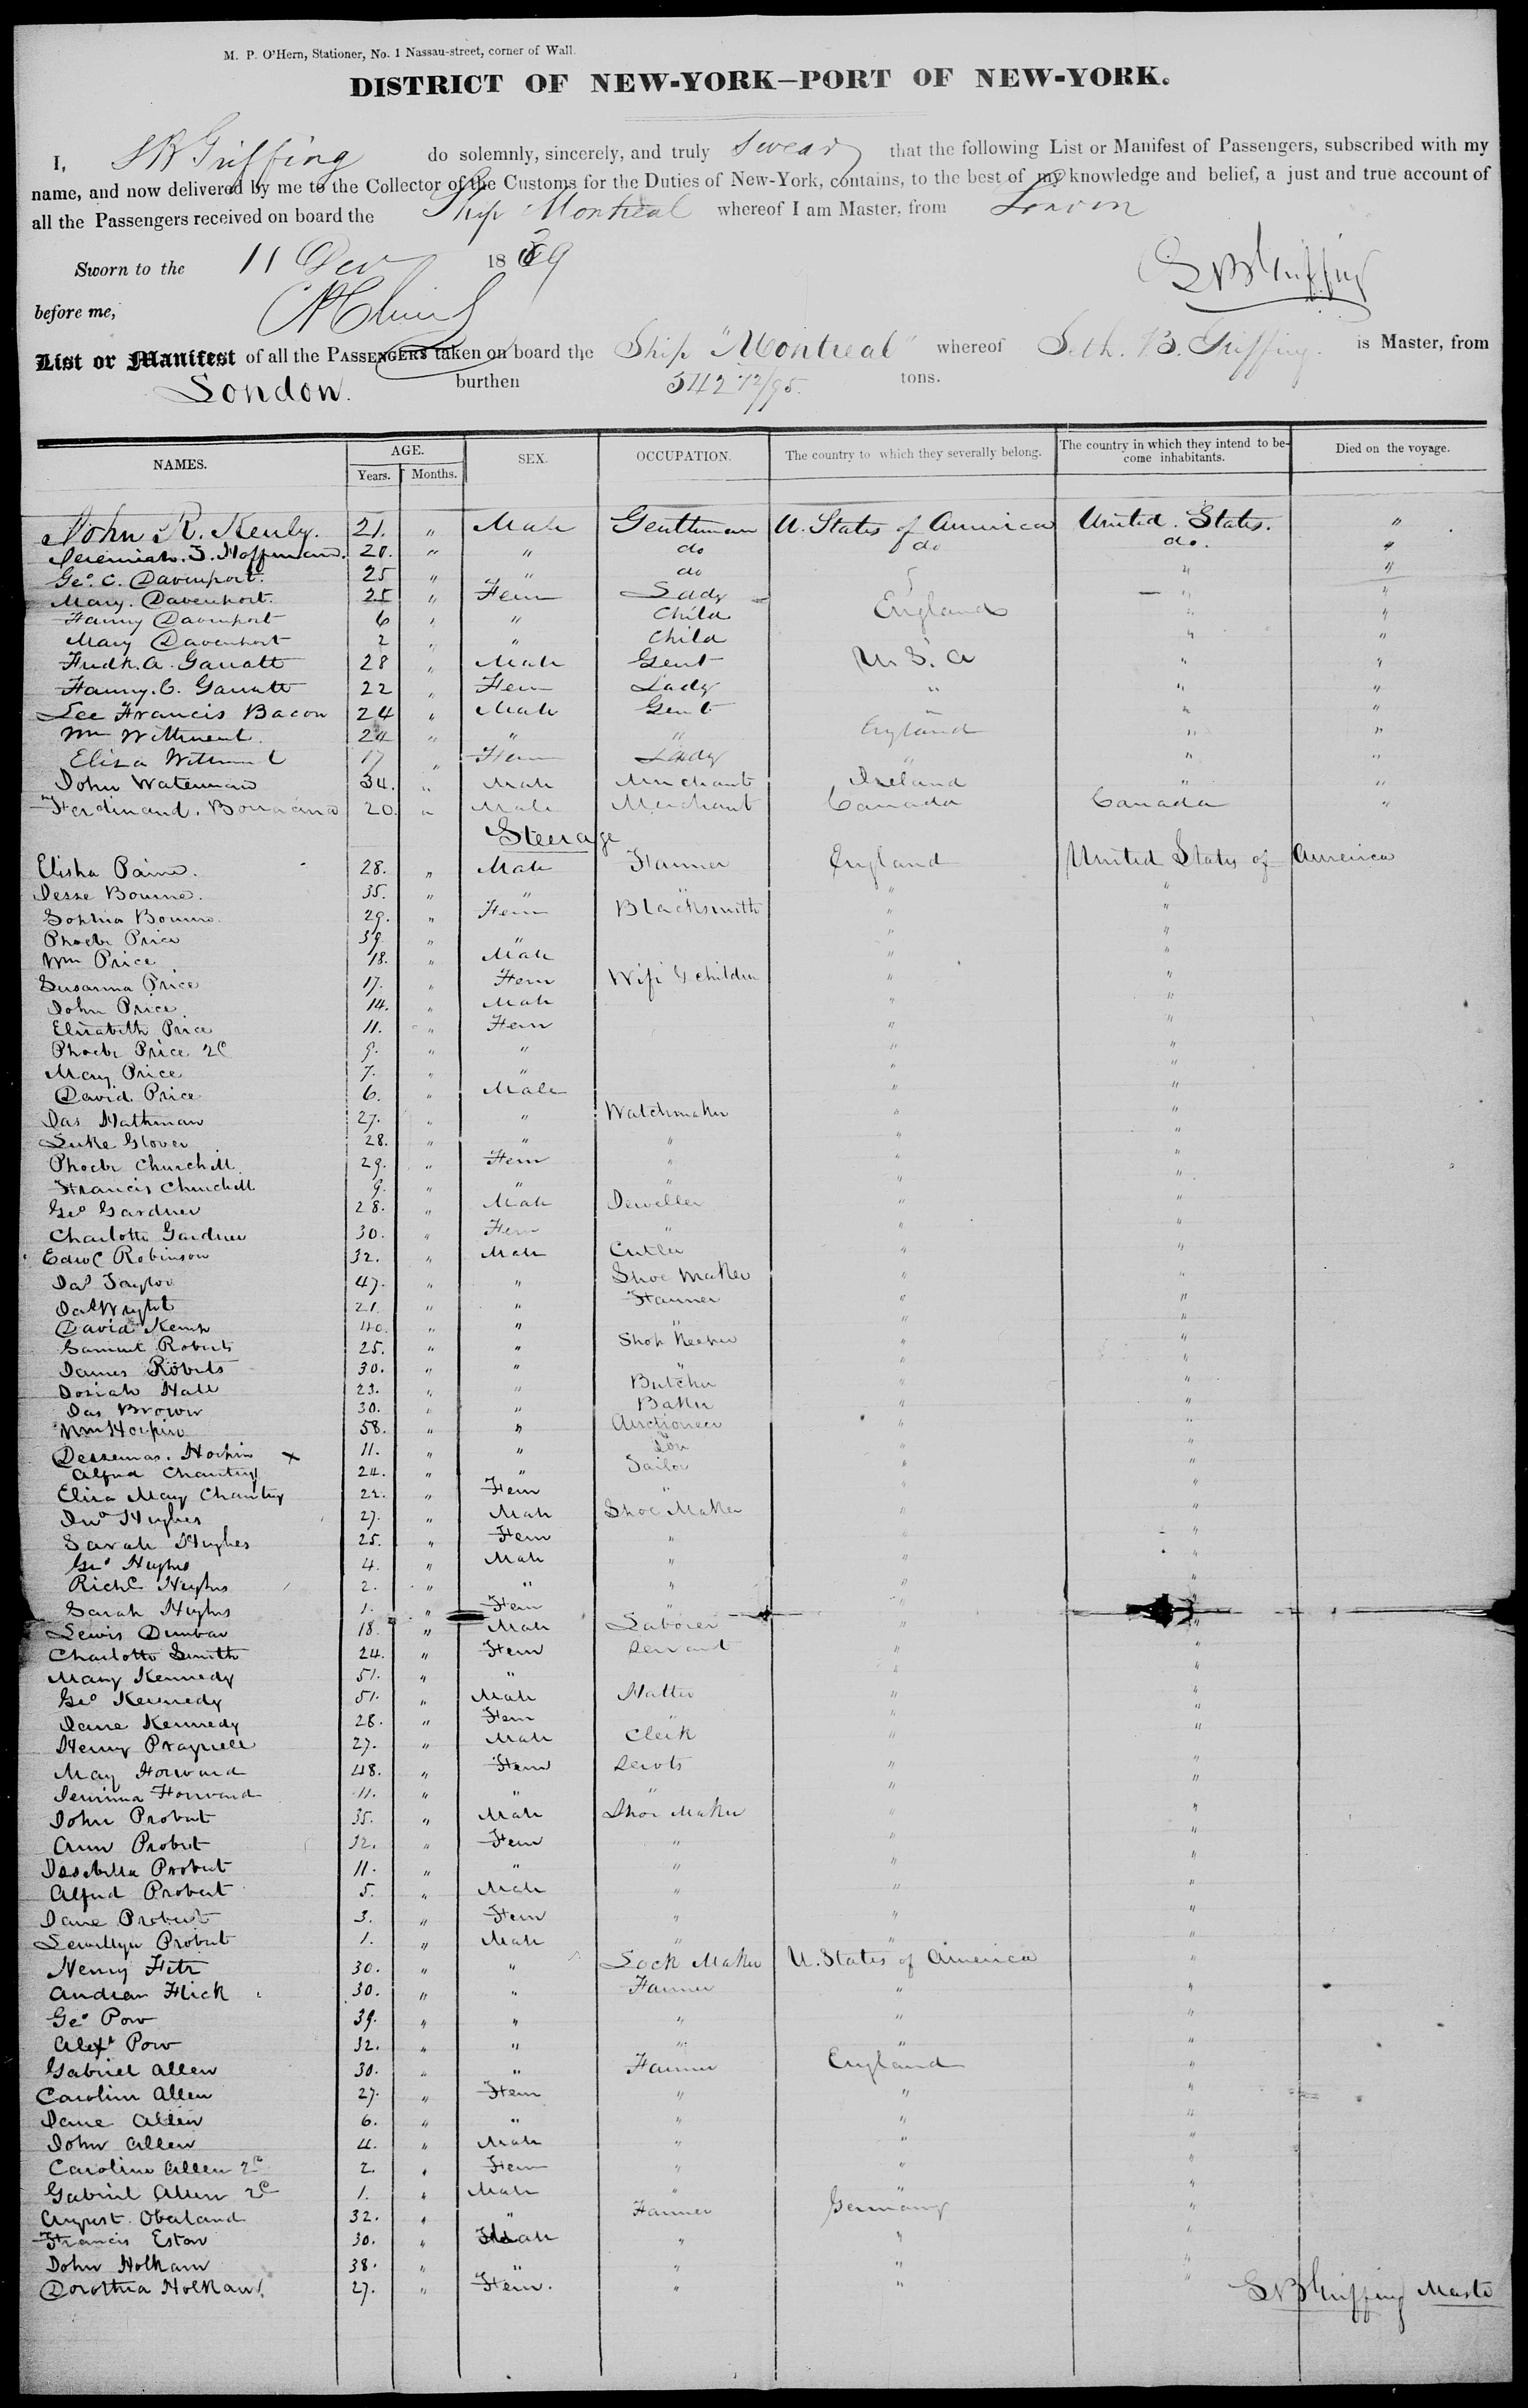 M. P. O'Hern, Stationer, No. 1 Nassau-street, corner of Wall.
DISTRICT OF NEW-YORK—PORT OF NEW-YORK.
I, S B Griffing do solemnly, sincerely, and truly swear that the following List or Manifest of Passengers, subscribed with my
name, and now delivered by me to the Collector of the Customs for the Duties of New-York, contains, to the best of my knowledge and belief, a just and true account of
all the Passengers received on board the Ship Montreal whereof I am Master, from London
Sworn to the 11 Dec 1839
S B Griffing
before me,
List or Manifest of all the PASSENGERS taken on board the Ship "Montreal" whereof Seth. B. Griffing. is Master, from
London. burthen 542 72/95. tons.
NAMES. AGE. Years. Months. SEX. OCCUPATION. The country to which they severally belong. The country in which they intend to become inhabitants. Died on the voyage.
John R. Kenly. 21. " Male Gentleman U. States of America United States. "
Jeremiah. T. Hoffman. 20. " " do do do. "
Geo. C. Davenport. 25 " " do " "
Mary. Davenport. 25 " Fem Lady " "
Fanny Davenport 6 " " Child England " "
Mary Davenport 2 " " Child " "
Fredk. A. Garratt 28 " Male Gent U. S. A " "
Fanny. C. Garratt 22 " Fem Lady " " "
Lee Francis Bacon 24 " Male Gent " " "
Wm Witment. 24 " " " England " "
Eliza Witment 17 " Fem Lady " " "
John Waterman 34. " Male Merchant Ireland " "
Ferdinand. 20. " Male Merchant Canada Canada "
Steerage
Elisha Paine. 28. " Male Farmer England United States of America
Jesse Bourne. 35. " " " " "
Sophia Bourne 29. " Fem Blacksmith " "
Phoebe Price 39. " " " "
Wm Price 18. " Male " "
Susanna Price 17. " Fem Wife & children " "
John Price. 14. " Male "
Elizabeth Price 11. " Fem " "
Phoebe Price 2d 9. " " " "
Mary Price 7. " " " "
David. Price 6. " Male " "
Jas Nathman 27. " " Watchmaker " "
Luke Glover 28. " " " " "
Phoebe Churchill. 29. " Fem " " "
Francis Churchill 9. " " " " "
Geo Gardner 28. " Male Jeweller " "
Charlotte Gardner 30. " Fem " " "
Edwd Robinson 32. " Male Cutler " "
Jas Taylor 47. " " Shoe Maker " "
Jas Wright 21. " " Farmer " "
David Kemp 40. " " " " "
Samuel Roberts 25. " " Shop Keeper " "
James Roberts 30. " " " " "
Josiah Hall 23. " " Butcher " "
Jas Brown 30. " " Baker " "
Wm 58. " " Auctioneer " "
11. " " Son " "
Alfred Chantry 24. " " Tailor " "
Eliza Mary Chantry 22. " Fem " " "
Jno Hughes 27. " Male Shoe Maker " "
Sarah Hughes 25. " Fem " " "
Geo Hughes 4. " Male " " "
Richd Hughes 2. " " " " "
Sarah Hughes 1. " Fem " " "
Lewis Dunbar 18. " Male Laborer " "
Charlotte Smith 24. " Fem Servant " "
Mary Kennedy 51. " " " "
Geo Kennedy 51. " Male Hatter " "
Jane Kennedy 28. " Fem " " "
Henry Pragnell 27. " Male Clerk " "
May Horward 48. " Fem Servts " "
Jemima Horward 11. " " " " "
John Probert 35. " Male Shoe Maker " "
Ann Probert 32. " Fem " " "
Issabella Probert 11. " " " " "
Alfred Probert 5. " Male " " "
Jane Probert 3. " Fem " " "
Lewellyn Probert 1. " Male " " "
Henry Fitz 30. " " Lock Maker U. States of America "
Andrew Flick 30. " " Farmer " "
Geo Pow 39. " " " " "
Alexr Pow 32. " " " " "
Gabriel Allen 30. " " Farmer England "
Caroline Allen 27. " Fem " " "
Jane Allen 6. " " " " "
John Allen 4. " Male " " "
Caroline Allen 2d 2. " Fem " " "
Gabriel Allen 2d 1. " Male " " "
August Oberland 32. " " Farmer Germany "
Francis Eston 30. " Male " " "
John Holkam 38. " " " " "
Dorothea Holkam. 27. " Fem. " " "
S B Griffing Master